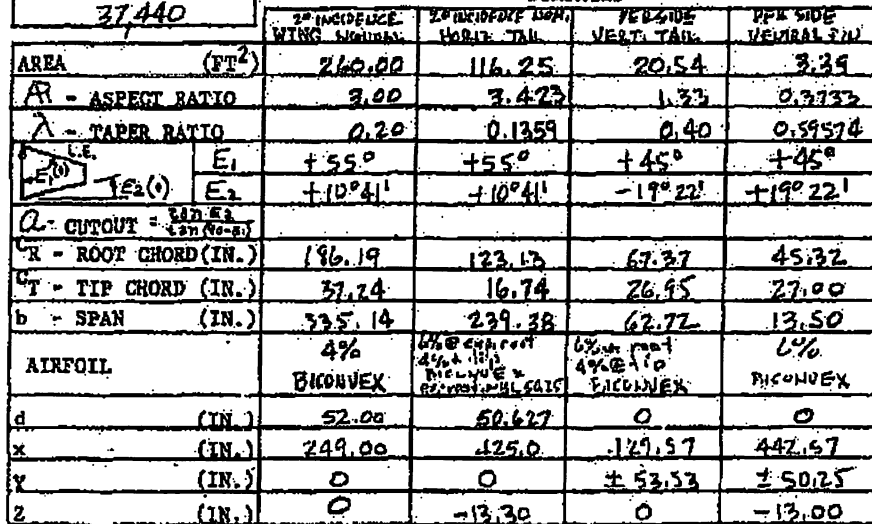 37,440
2° INCIDENCE WING 2° INCIDENCE HORIZ TAIL PER SIDE VERT. TAIL PER SIDE VENTRAL FIN
AREA (FT2) 260.00 116.25 20.54 3.39
AR - ASPECT RATIO 3.00 3.423 1.33 0.3733
λ - TAPER RATIO 0.20 0.1359 0.40 0.59574
L.E. E1(°) E1 +55° +55° +45° +45°
E2(°) E2 +10°41' +10°41' -19°22' +19°22'
a - CUTOUT =
CR - ROOT CHORD (IN.) 186.19 123.13 67.37 45.32
CT - TIP CHORD (IN.) 37.24 16.74 26.95 27.00
b - SPAN (IN.) 335.14 239.38 62.72 13.50
AIRFOIL 4% BICONVEX 6% root 4% BICONVEX 6% root 4% @ tip BICONVEX 6% BICONVEX
d (IN.) 52.00 50.627 0 0
x (IN.) 249.00 425.0 429.57 442.57
y (IN.) 0 0 ± 53.53 ± 50.25
z (IN.) 0 -13.30 0 -13.00